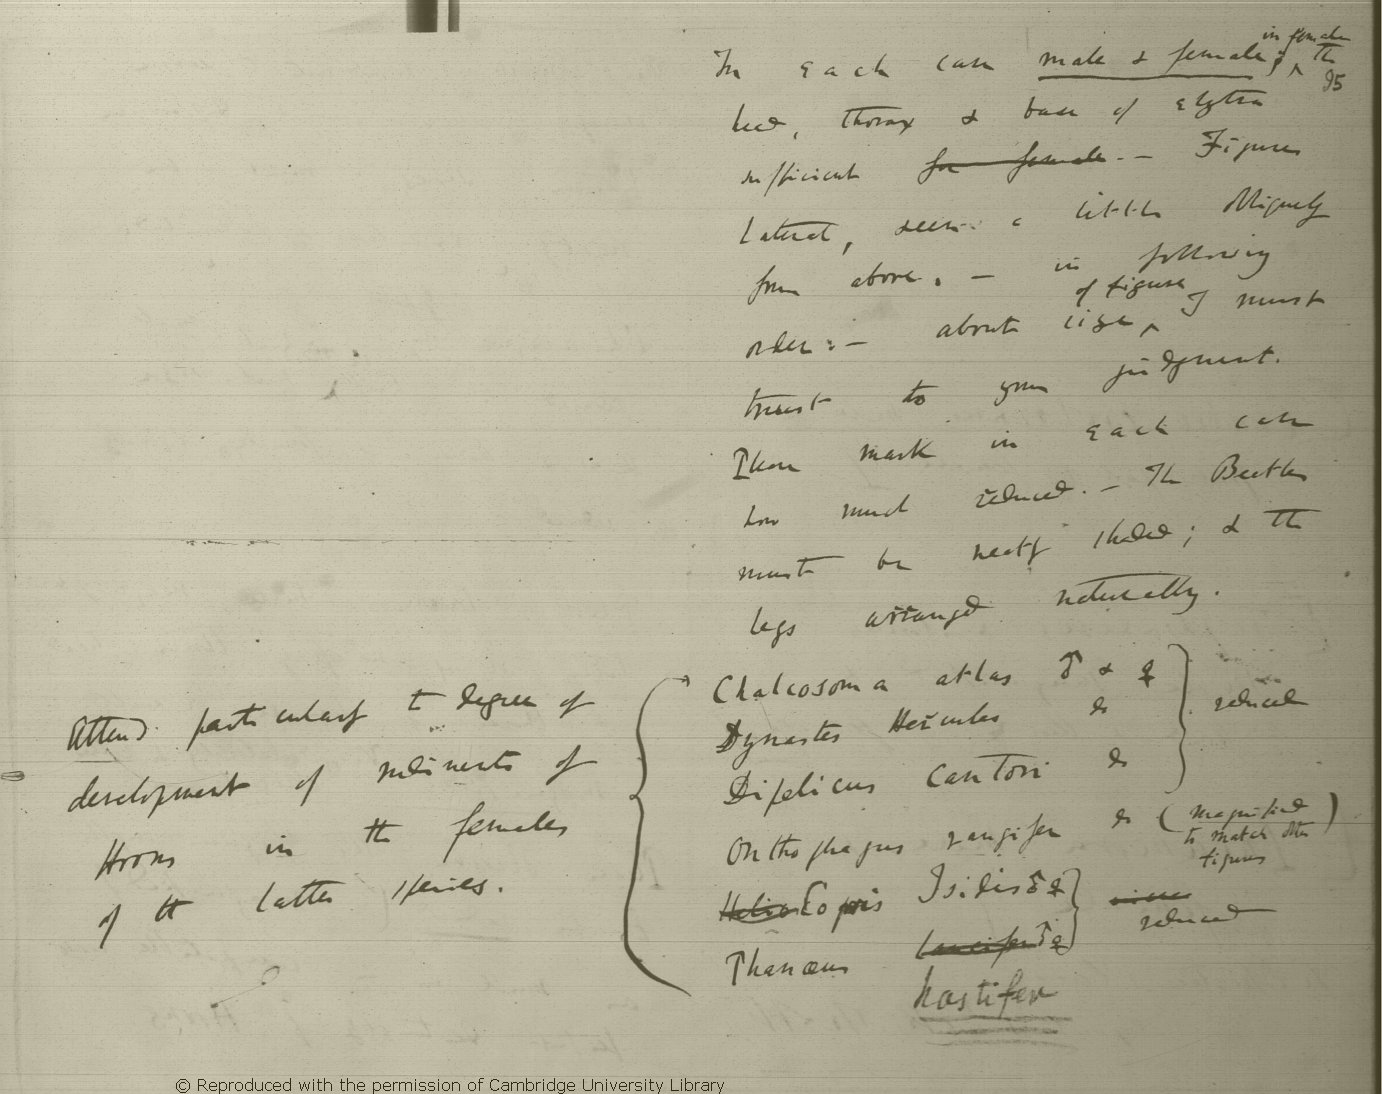 In each case male & female; in female the
95
head, thorax & base of elytra
sufficient for female. — Figures
lateral, seen a little obliquely
from above. — in following
order: — about size of figure I must
trust to your judgment.
Then mark in each case
how much reduced. — The Beetles
must be neatly shaded; & the
legs arranged naturally.
Attend particularly to degree of
development of rudiments of
Horns in the females
of the latter species.
Chalcosoma atlas ♂ & ♀
Dynastes Hercules do
Dipelicus Cantori do
reduced
Onthophagus rangifer do (magnified
to match other
figures)
Helio Copris Isidis ♂ ♀
Phanæus lancifer ♂ ♀
reduced
hastifer
© Reproduced with the permission of Cambridge University Library